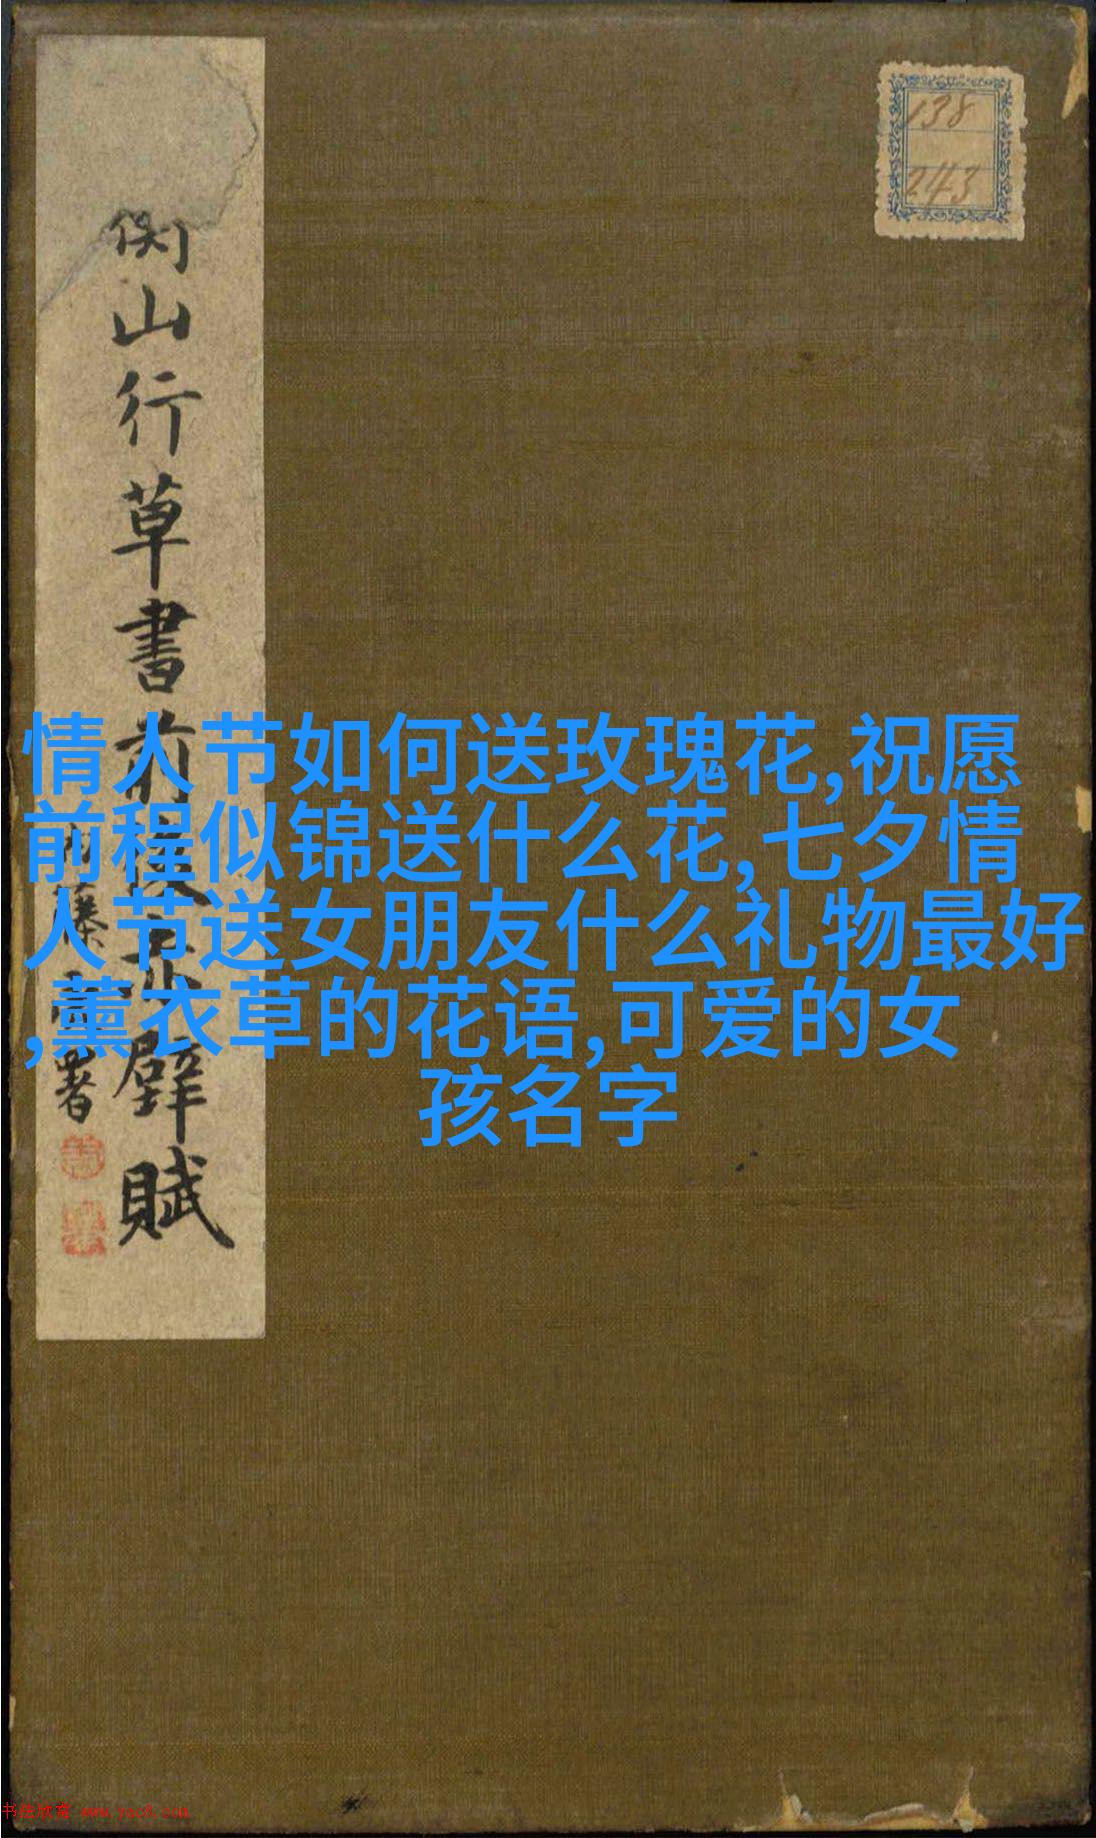 138
243
衡山行草書前後赤壁賦
情人节如何送玫瑰花,祝愿
前程似锦送什么花,七夕情
人节送女朋友什么礼物最好
,薰衣草的花语,可爱的女
孩名字
书法欣赏 www.yac8.com